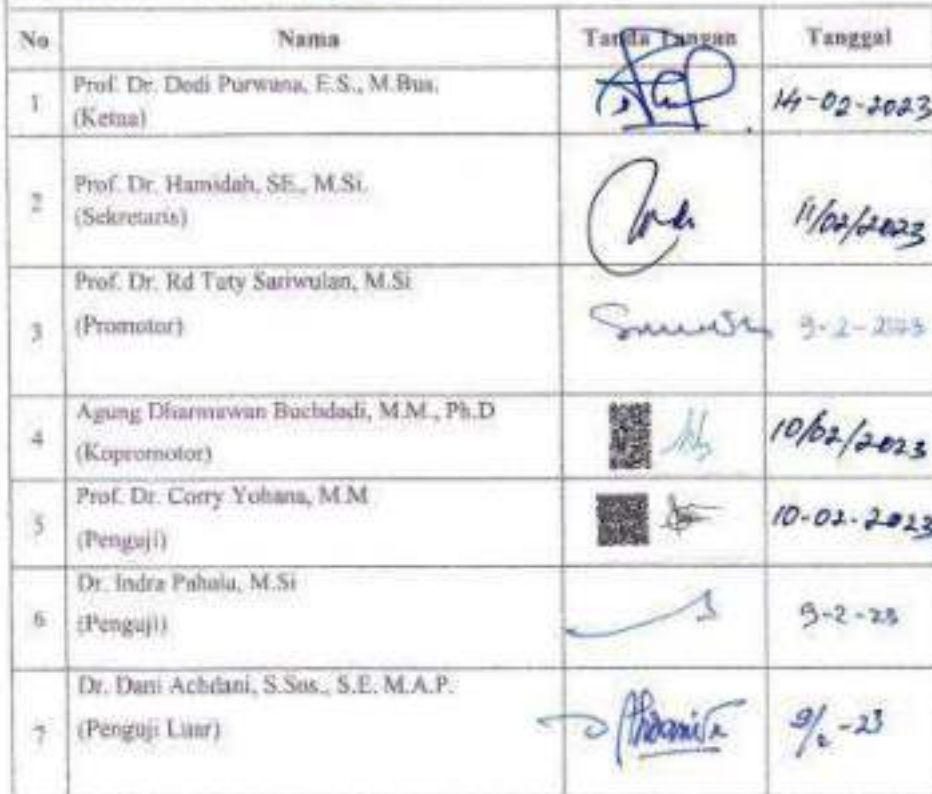 No Nama Tanda Tangan Tanggal
1 Prof. Dr. Dedi Purwana, E.S., M.Bus.
(Ketua) 14-02-2023
2 Prof. Dr. Hamidah, SE., M.Si.
(Sekretaris) 11/02/2023
3 Prof. Dr. Rd Tuty Sariwulan, M.Si
(Promotor) 9-2-2023
4 Agung Dharmawan Buchdadi, M.M., Ph.D
(Kopromotor) 10/02/2023
5 Prof. Dr. Corry Yohana, M.M
(Penguji) 10-02-2023
6 Dr. Indra Pahala, M.Si
(Penguji) 9-2-23
7 Dr. Dani Achdani, S.Sos., S.E. M.A.P.
(Penguji Luar) 9/2-23